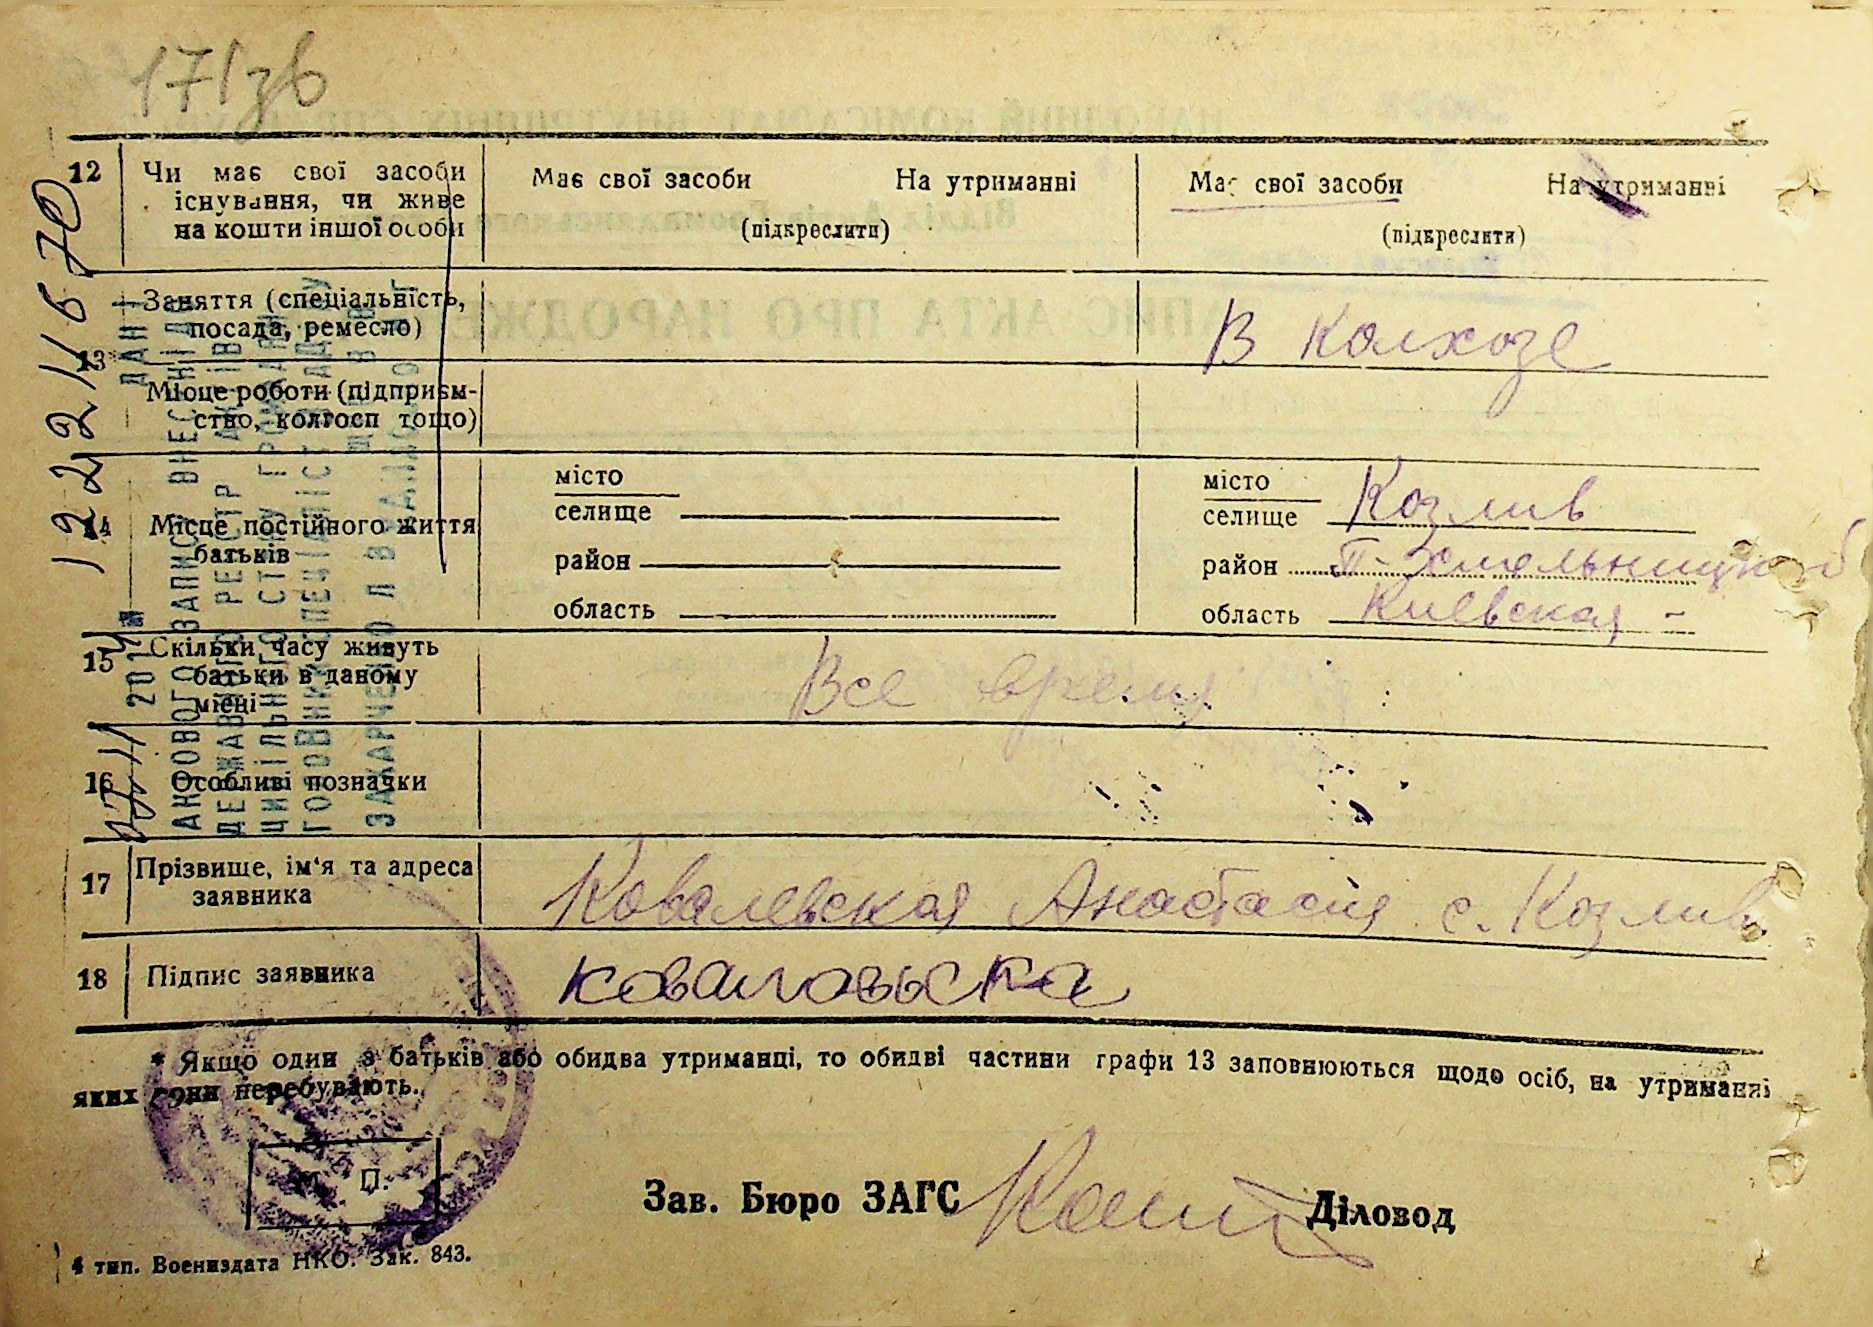 171зв
12 Чи має свої засоби існування, чи живе на кошти іншої особи
Має свої засоби На утриманні
(підкреслити)
Має свої засоби На утриманні
(підкреслити)
13 Заняття (спеціальність, посада, ремесло)
В колхозе
Місце роботи (підприєм-
ство, колгосп тощо)
14 Місце постійного життя батьків
місто
селище
район
область
місто
селище Козлив
район П-Хмельницкий
область Киевская -
15 Скільки часу живуть батьки в даному місці
Все время
16 Особливі позначки
17 Прізвище, ім'я та адреса заявника
Ковалевская Анастасия с. Козлив
18 Підпис заявника
ковалевьска
* Якщо один з батьків або обидва утриманці, то обидві частини графи 13 заповнюються щодо осіб, на утриманні
яких вони перебувають.
М. П.
Зав. Бюро ЗАГС
Діловод
4 тип. Воениздата НКО. Зак. 843.
ДАНІ
АКТОВОГО ЗАПИСУ ВНЕСЕНІ ДО
ДЕРЖАВНОГО РЕЄСТРУ АКТІВ
ЦИВІЛЬНОГО СТАНУ ГРОМАДЯН
ГОЛОВНИЙ СПЕЦІАЛІСТ ВІДДІЛУ